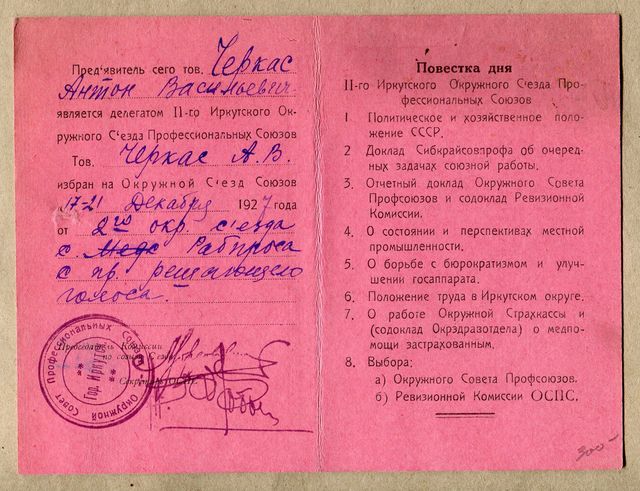 Пред'явитель сего тов. Черкас
Антон Васильевич
является делегатом II-го Иркутского Ок-
ружного С'езда Профессиональных Союзов
Тов. Черкас А. В.
избран на Окружной С'езд Союзов
17-21 Декабря 1927 года
от 2го окр. с'езда
с. Медс Рабпроса
с пр. решающего
голоса.
Председатель Комиссии
по созыву С'езда
Секретарь
Окружной Совет Профессиональных Союзов
Гор. Иркутск
Повестка дня
II-го Иркутского Окружного С'езда Про-
фессиональных Союзов
1 Политическое и хозяйственное поло-
жение СССР.
2 Доклад Сибкрайсовпрофа об очеред-
ных задачах союзной работы.
3. Отчетный доклад Окружного Совета
Профсоюзов и содоклад Ревизионной
Комиссии.
4. О состоянии и перспективах местной
промышленности.
5. О борьбе с бюрократизмом и улуч-
шении госаппарата.
6. Положение труда в Иркутском округе.
7. О работе Окружной Страхкассы и
(содоклад Окрздравотдела) о медпо-
мощи застрахованным.
8. Выбора:
а) Окружного Совета Профсоюзов.
б) Ревизионной Комиссии ОСПС.
300-